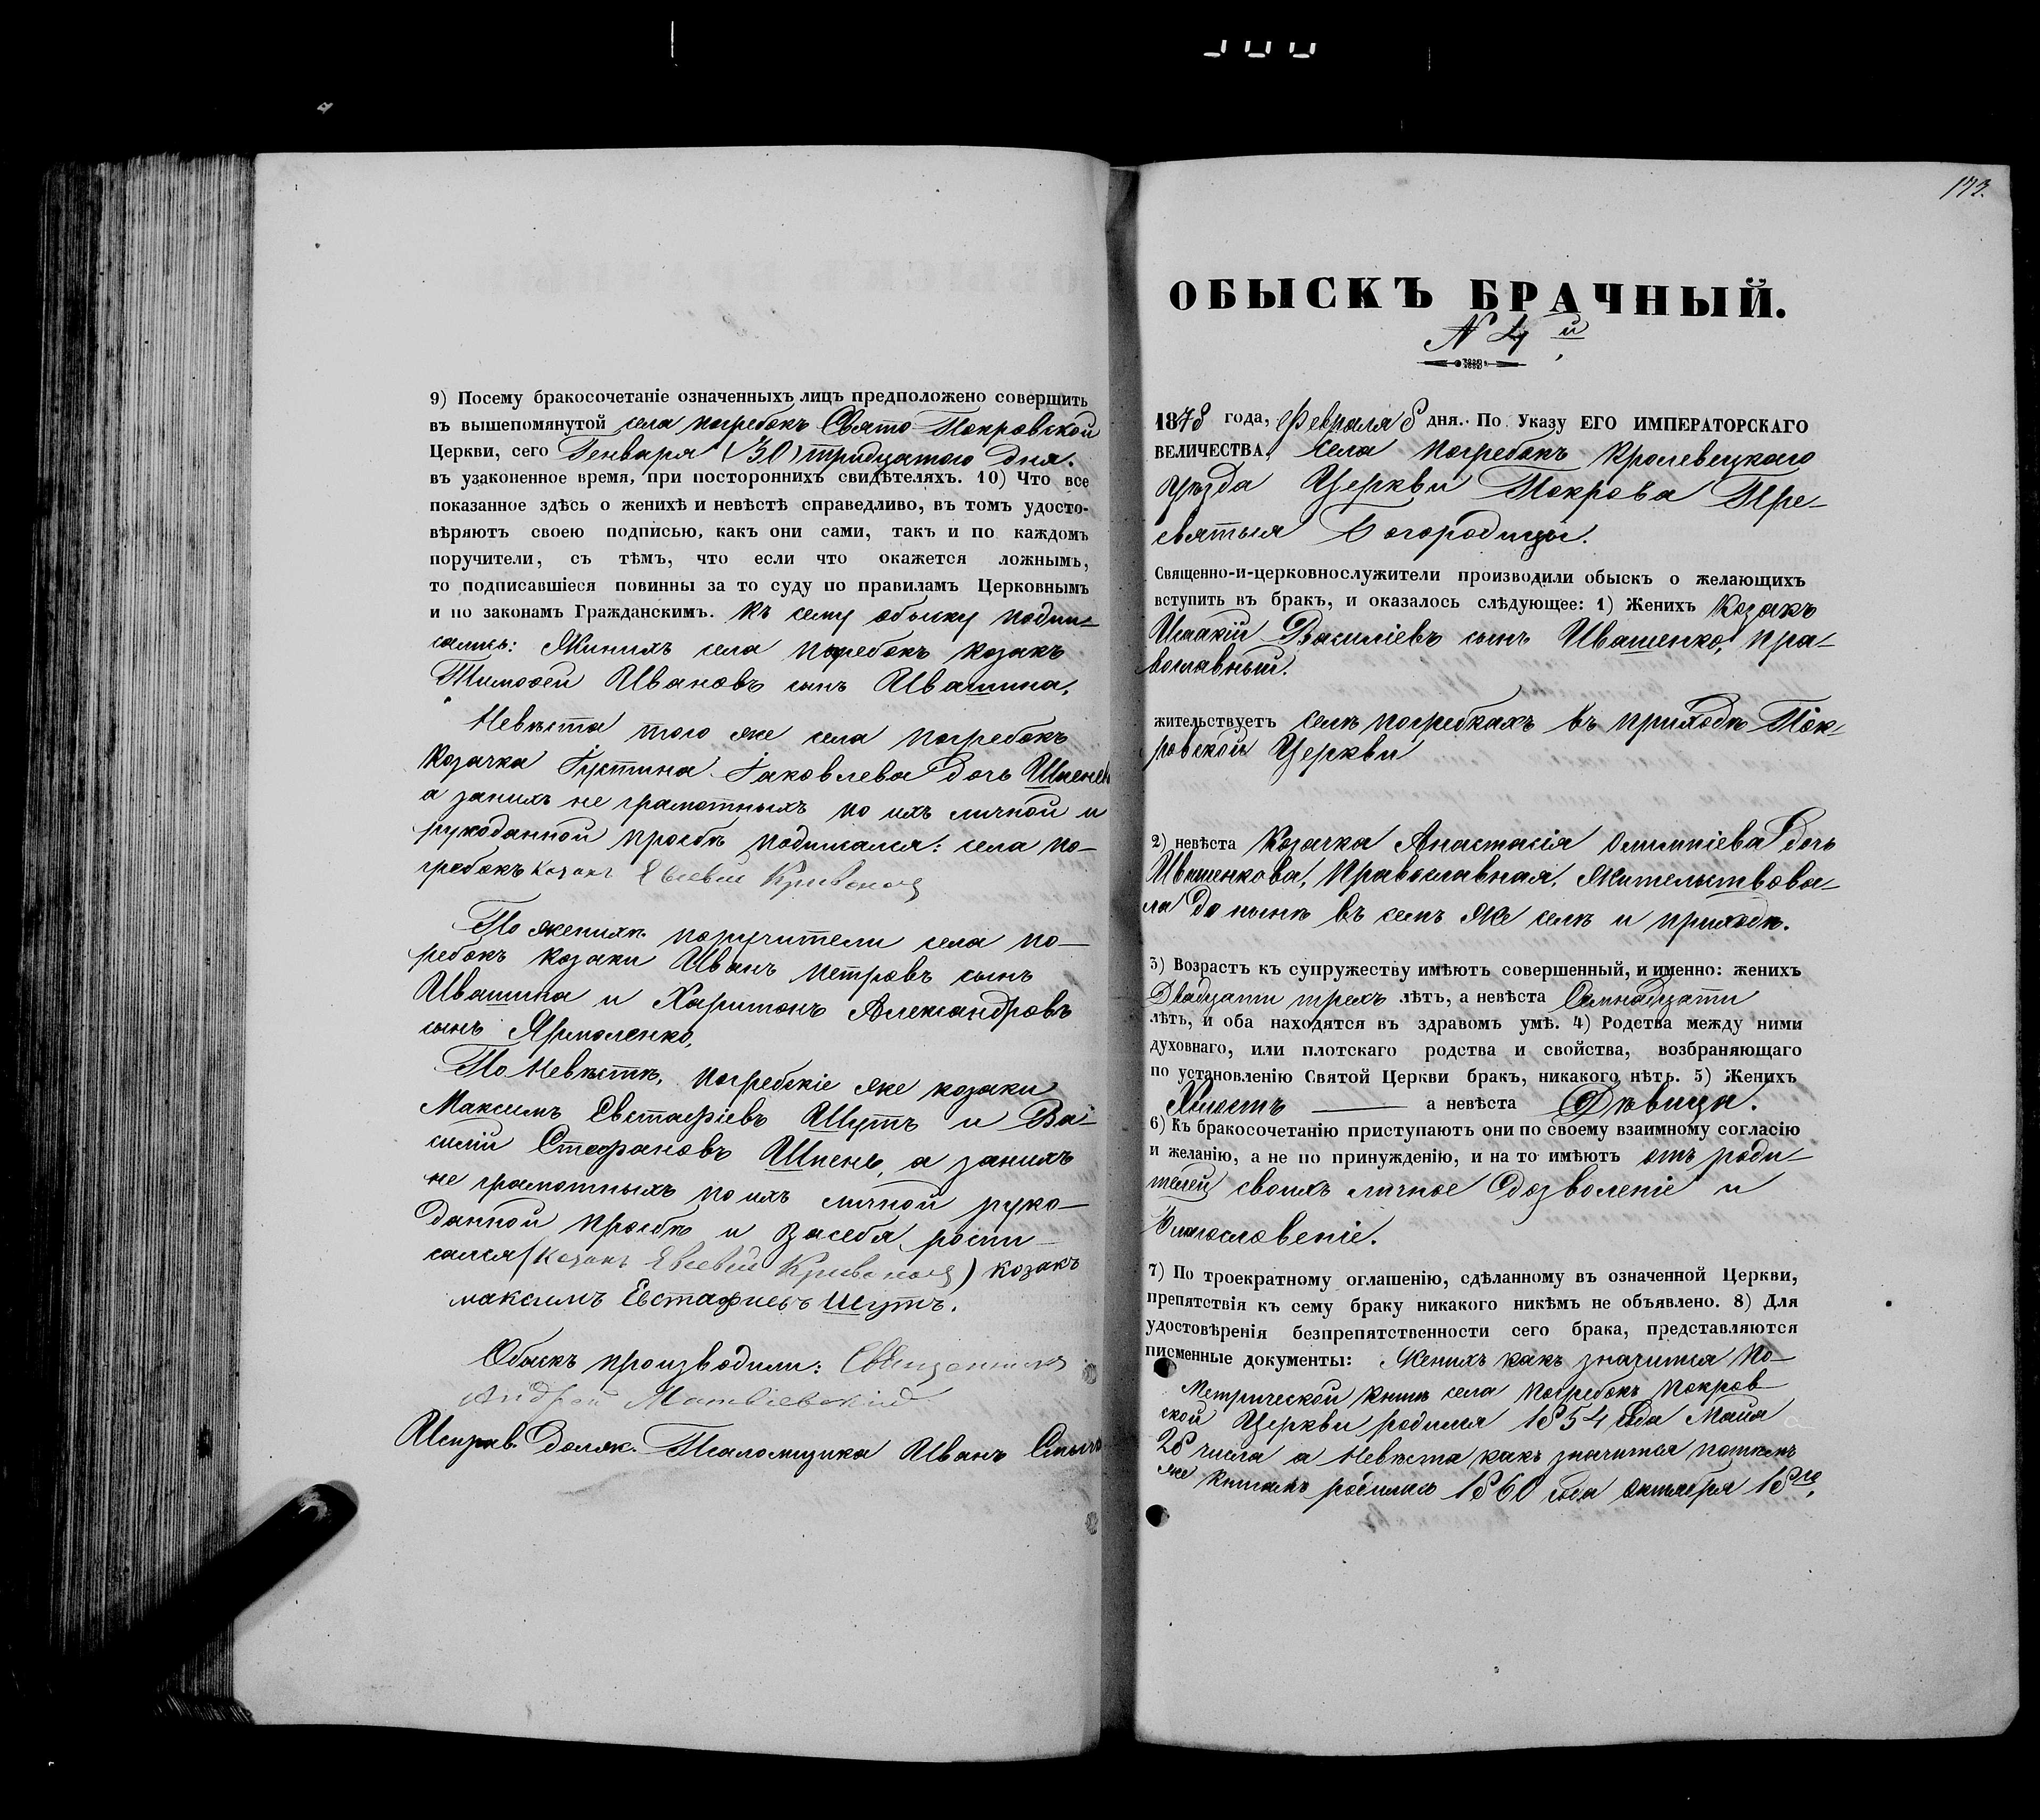 9) Посему бракосочетаніе означенныхъ лицъ предположено совершить
въ вышепомянутой села погребокъ Свято Покровской
Церкви, сего Генваря (30) тридцатого дня.
въ узаконенное время, при постороннихъ свидѣтеляхъ. 10) Что все
показанное здѣсь о женихѣ и невѣстѣ справедливо, въ томъ удосто-
вѣряютъ своею подписью, какъ они сами, такъ и по каждомъ
поручители, съ тѣмъ, что если что окажется ложнымъ,
то подписавшіеся повинны за то суду по правиламъ Церковнымъ
и по законамъ Гражданскимъ. Къ сему обыску подпи-
сались: Женихъ села погребокъ козакъ
Тимофей Ивановъ сынъ Ивашина,
Невѣста того же села погребокъ
Козачка Іустина Іаковлева дочь
а занихъ не грамотныхъ по ихъ личной и
рукоданной просбѣ подписался: села по-
гребокъ козакъ Явсевій
По женихѣ поручители села по-
гребокъ козаки Иванъ петровъ сынъ
Ивашина и Харитонъ Александровъ
сынъ Ярмоленко,
По Невѣстѣ, погребскіе же козаки
Максимъ Евстафіевъ Шутъ и Ва-
силій Стефановъ Шпень, а занихъ
не грамотныхъ по ихъ личной руко-
данной просбѣ и засебя роспи-
сался (козакъ Явсевій) козакъ
максимъ Евстафиевъ Шутъ.
Обыскъ производили: Священникъ
Андрей Матвіевскій
Исправ. Долж. Псаломщика Иванъ
173.
ОБЫСКЪ БРАЧНЫЙ.
N 4й
1878 года, Февраля 8 дня. По Указу ЕГО ИМПЕРАТОРСКАГО
ВЕЛИЧЕСТВА, села погребокъ Кролевецкаго
Уѣзда Церкви Покрова Пре-
святыя Богородицы.
Священно-и-церковнослужители производили обыскъ о желающихъ
вступить въ бракъ, и оказалось слѣдующее: 1) Женихъ Козакъ
Исаакій Василіевъ сынъ Ивашенко, пра-
вославный.
жительствуетъ селѣ погребкахъ въ приходѣ Пок-
ровской Церкви
2) невѣста Козачка Анастасія Олимпіева дочь
Ивашенкова, Православная, жительствова-
ла до нынѣ въ семъ же селѣ и приходѣ.
3) Возрастъ къ супружеству имѣютъ совершенный, и именно: женихъ
Двадцати трехъ лѣтъ, а невѣста Семнадцати
лѣтъ, и оба находятся въ здравомъ умѣ. 4) Родства между ними
духовнаго, или плотскаго родства и свойства, возбраняющаго
по установленію Святой Церкви бракъ, никакого нѣтъ. 5) Женихъ
Холостъ — а невѣста Дѣвица.
6) Къ бракосочетанію приступаютъ они по своему взаимному согласію
и желанію, а не по принужденію, и на то имѣютъ отъ роди-
телей своихъ личное дозволеніе и
Благословеніе.
7) По троекратному оглашенію, сдѣланному въ означенной Церкви,
препятствія къ сему браку никакого никѣмъ не объявлено. 8) Для
удостовѣренія безпрепятственности сего брака, представляются
писменные документы: Женихъ какъ значится по-
Метрической книгѣ села погребокъ покров-
ской Церкви родился 1854 года Мая
28 числа а Невѣста какъ значится потѣмъ
же книгамъ родилась 1860 года октября 18го,